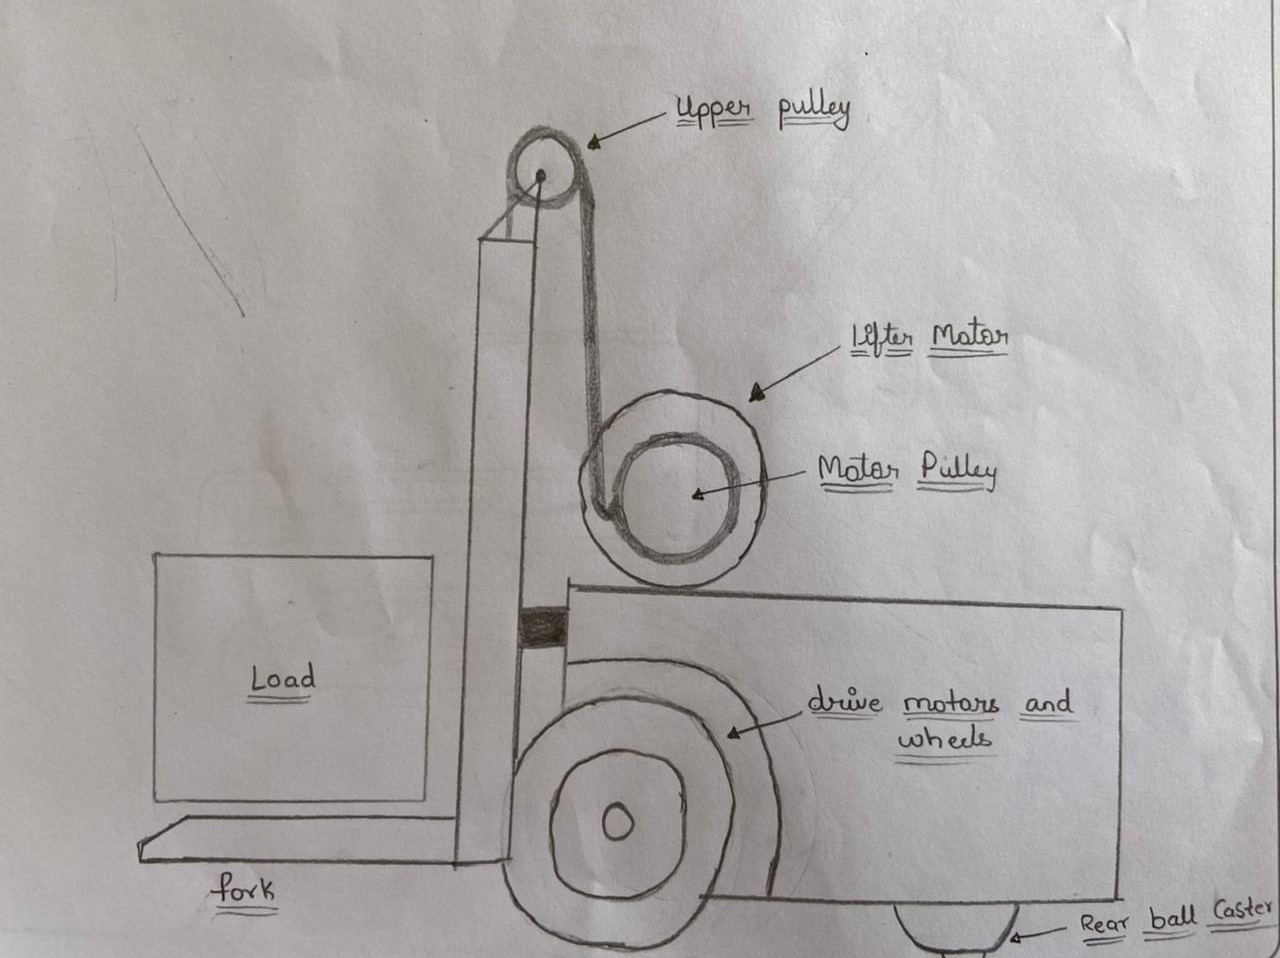 Upper pulley
Lifter Motor
Motor Pulley
Load
drive motors and
wheels
fork
Rear ball Caster